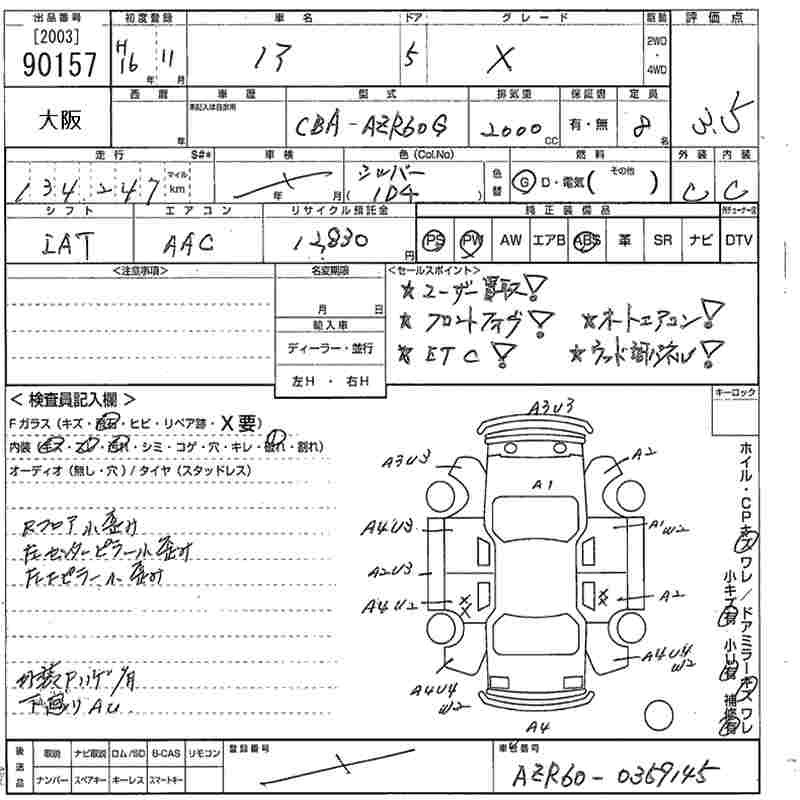 出品番号 初度登録 車名 ドア グレード 駆動 評価点
[2003] 90157 H16年 11月 5 X 2WD・4WD 3.5
大阪 西暦 車歴 型式 排気量 保証書 定員
年 車歴記入は自家用 CBA-AZR60G 2000CC 有・無 8名
走行 S#* 車検 色(Col.No) 色替 燃料 外装 内装
134247 マイル km 年 月 シルバー (1D4) G D・電気( その他 ) C C
シフト エアコン リサイクル預託金 純正装備品
IAT AAC 12,830円 PS PW AW エアB ABS 革 SR ナビ DTV
<注意事項> 名変期限 <セールスポイント>
月 日 ★ユーザー買取!
輸入車 ★ ★オートエアコン!
ディーラー・並行 ★ETC! ★ウッド調パネル!
左H・右H
<検査員記入欄> キーロック
Fガラス(キズ・飛石・ヒビ・リペア跡・X要)
内装(キズ・スレ・汚れ・シミ・コゲ・穴・キレ・破れ・割れ)
オーディオ(無し・穴)/タイヤ(スタッドレス)
Rフロア小歪み
左センターピラー小歪み
左Fピラー小歪み
下廻りAU
A3U3
A3U3 A2
A1
A4U3 A1 W2
A2U3
A4U2 XX XX A2
A4U4 W2
A4U4 W2
A4
ホイル・CPキズ ワレ/ドアミラーキズ ワレ
小キズ有 小U有 補修有
後送品 取説 ナビ取説 ロム/SD B-CAS リモコン 登録番号 車台番号
ナンバー スペアキー キーレス スマートキー AZR60-0359145